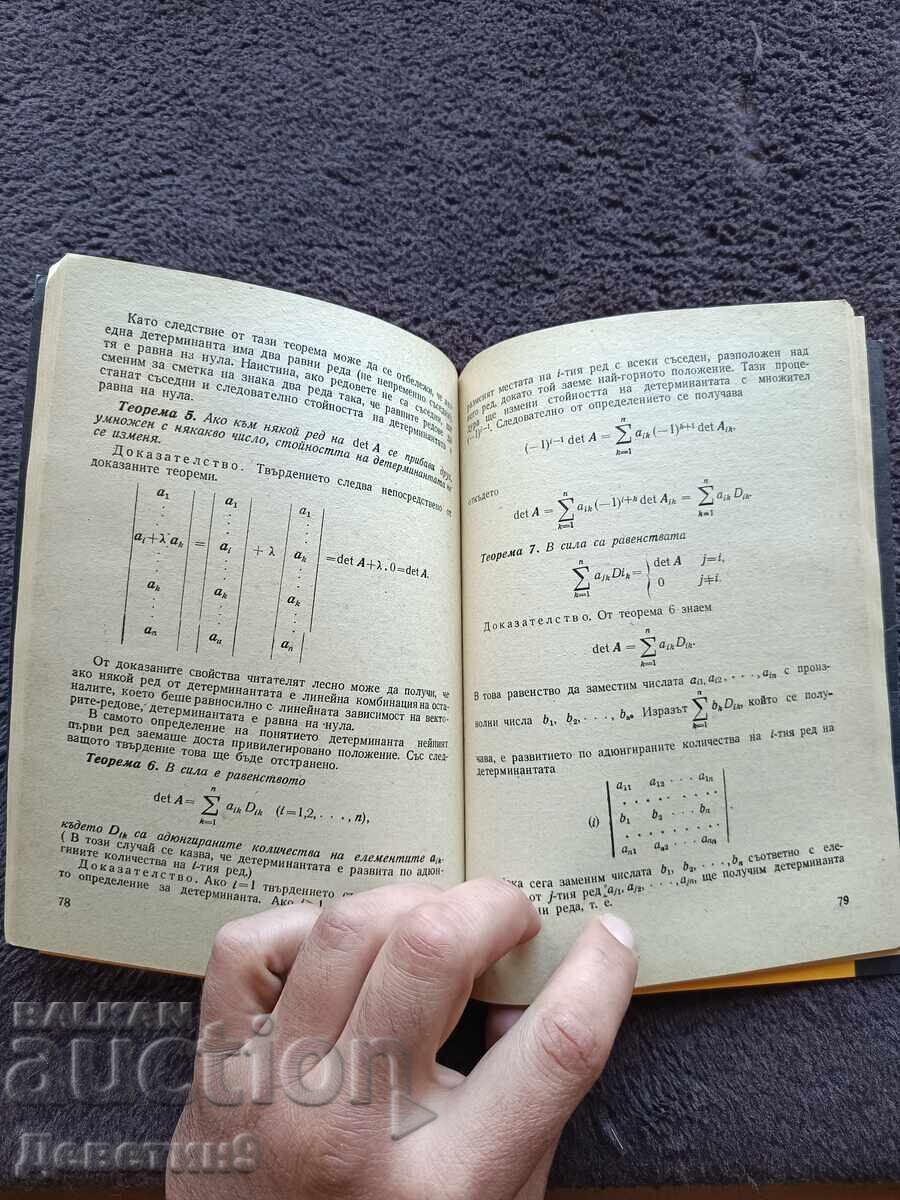 Като следствие от тази теорема може да се отбележи, че
една детерминанта има два равни реда (не непременно съседни
тя е равна на нула. Наистина, ако редовете не са съседни, ще
сменим за сметка на знака два реда така, че равните редове да
станат съседни и следователно стойността на детерминантата
равна на нула.
Теорема 5. Ако към някой ред на det A се прибави друг,
умножен с някакво число, стойността на детерминантата не
се изменя.
Доказателство. Твърдението следва непосредствено от
доказаните теореми.
| a₁ ... aᵢ+λ aₖ ... aₖ ... aₙ | = | a₁ ... aᵢ ... aₖ ... aₙ | + λ | a₁ ... aₖ ... aₖ ... aₙ | = det A+λ.0=det A.
От доказаните свойства читателят лесно може да получи, че
ако някой ред от детерминантата е линейна комбинация на оста-
налите, което беше равносилно с линейната зависимост на векто-
рите-редове, детерминантата е равна на нула.
В самото определение на понятието детерминанта нейният
първи ред заемаше доста привилегировано положение. Със след-
ващото твърдение това ще бъде отстранено.
Теорема 6. В сила е равенството
det A = ∑ₖ₌₁ⁿ aᵢₖ Dᵢₖ (i=1,2, . . . , n),
където Dᵢₖ са адюнгираните количества на елементите aᵢₖ.
(В този случай се казва, че детерминантата е развита по адюн-
гираните количества на i-тия ред.)
Доказателство. Ако i=1 твърдението
то определение за детерминанта. Ако
78
разменят местата на i-тия ред с всеки съседен, разположен над
ред, докато той заеме най-горното положение. Тази проце-
дура ще измени стойността на детерминантата с множител
(−1)ⁱ⁻¹. Следователно от определението се получава
(−1)ⁱ⁻¹ det A = ∑ₖ₌₁ⁿ aᵢₖ (−1)ᵏ⁺¹ det Aᵢₖ,
откъдето
det A = ∑ₖ₌₁ⁿ aᵢₖ (−1)ⁱ⁺ᵏ det Aᵢₖ = ∑ₖ₌₁ⁿ aᵢₖ Dᵢₖ.
Теорема 7. В сила са равенствата
∑ₖ₌₁ⁿ aⱼₖ Dᵢₖ = { det A j=i, 0 j≠i.
Доказателство. От теорема 6 знаем
det A = ∑ₖ₌₁ⁿ aᵢₖ Dᵢₖ.
В това равенство да заместим числата aᵢ₁, aᵢ₂, . . . , aᵢₙ с произ-
волни числа b₁, b₂, . . . , bₙ. Изразът ∑ₖ₌₁ⁿ bₖDᵢₖ, който се полу-
чава, е развитието по адюнгираните количества на i-тия ред на
детерминантата
a₁₁ a₁₂ · · · a₁ₙ
. . . . . . . . .
(i) b₁ b₂ · · · bₙ .
. . . . . . . . .
aₙ₁ aₙ₂ · · · aₙₙ
Нека сега заменим числата b₁, b₂, . . . , bₙ съответно с еле-
от j-тия ред aⱼ₁, aⱼ₂, . . . , aⱼₙ, ще получим детерминанта
ни реда, т. е.
79
BALKAN
auction
Деветин9